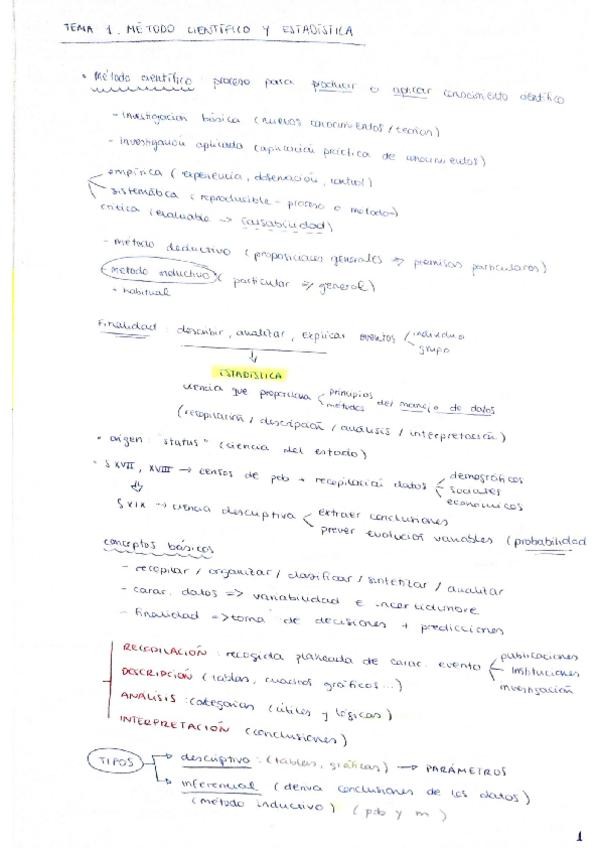 TEMA 1. MÉTODO CIENTÍFICO Y ESTADÍSTICA
• Método científico: proceso para producir o aplicar conocimiento científico
- Investigación básica (nuevos conocimientos / teorías)
- Investigación aplicada (aplicación práctica de conocimientos)
empírica (experiencia, observación, control)
sistemática (reproducible - proceso o método)
crítica (evaluable → falsabilidad)
- método deductivo (proposiciones generales => premisas particulares)
método inductivo (particular => general)
+ habitual
Finalidad: describir, analizar, explicar eventos individuo
grupo
ESTADÍSTICA
ciencia que proporciona principios
métodos del manejo de datos
(recopilación / descripción / análisis / interpretación)
• origen: "status" (ciencia del estado)
• S XVII, XVIII → censos de pob + recopilación datos demográficos
sociales
económicos
S XIX → ciencia descriptiva extraer conclusiones
prever evolución variables (probabilidad
conceptos básicos
- recopilar / organizar / clasificar / sintetizar / analizar
- carac. datos => variabilidad e incertidumbre
- finalidad => toma de decisiones + predicciones
RECOPILACIÓN: recogida planeada de carac. evento publicaciones
instituciones
investigación
DESCRIPCIÓN (tablas, cuadros gráficos...)
ANÁLISIS: categorías (útiles y lógicas)
INTERPRETACIÓN (conclusiones)
TIPOS descriptiva: (tablas, gráficas) → PARÁMETROS
inferencial (deriva conclusiones de los datos)
(método inductivo) (pob y m)
1